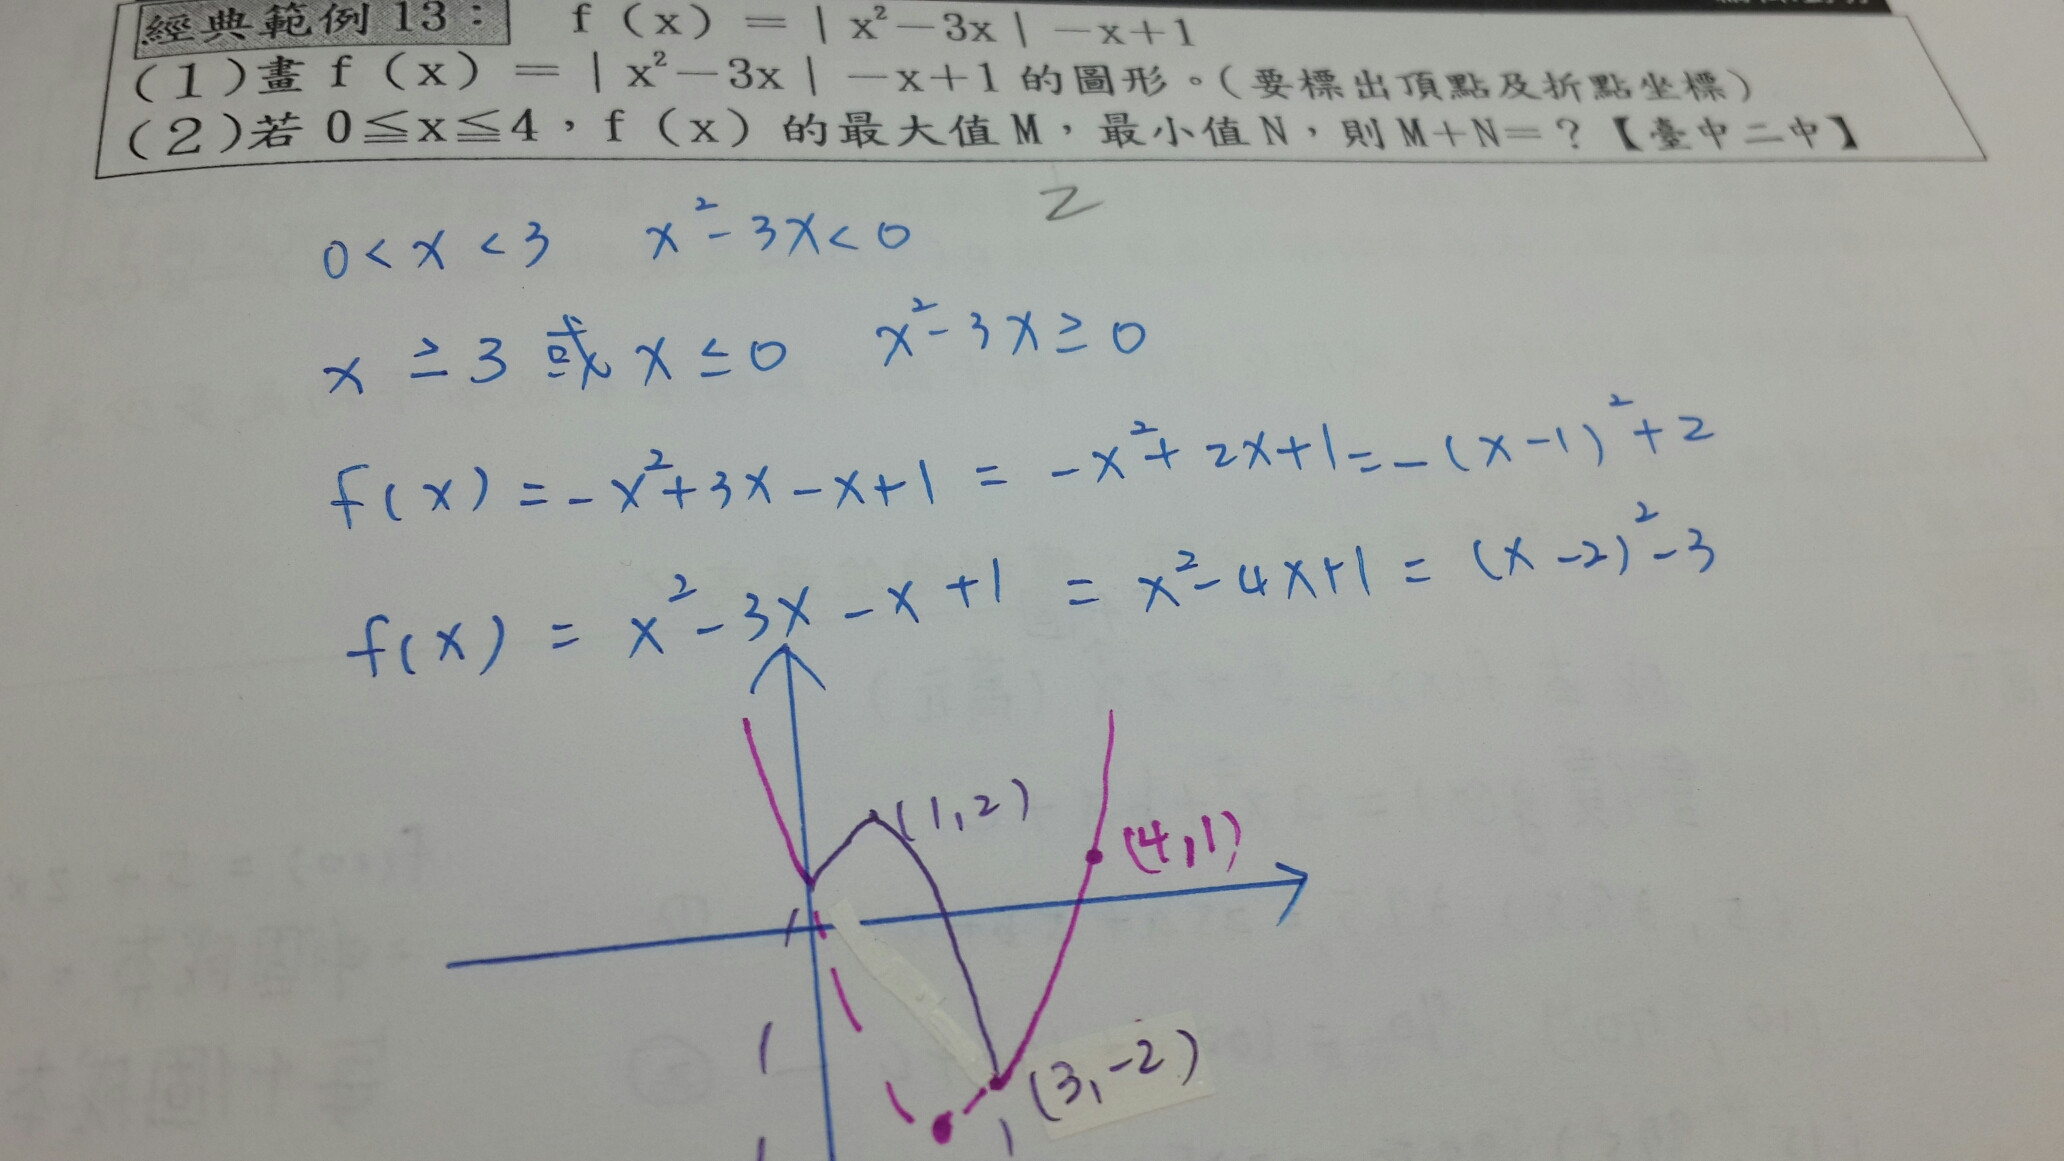 經典範例13： f（x）＝｜x²－3x｜－x＋1
(1)畫f（x）＝｜x²－3x｜－x＋1的圖形。(要標出頂點及折點坐標)
(2)若0≦x≦4，f（x）的最大值M，最小值N，則M＋N＝？【臺中二中】
0<x<3 x²-3x<0
x≥3或x≤0 x²-3x≥0
f(x)=-x²+3x-x+1=-x²+2x+1=-(x-1)²+2
f(x)=x²-3x-x+1=x²-4x+1=(x-2)²-3
(1,2)
(4,1)
(3,-2)